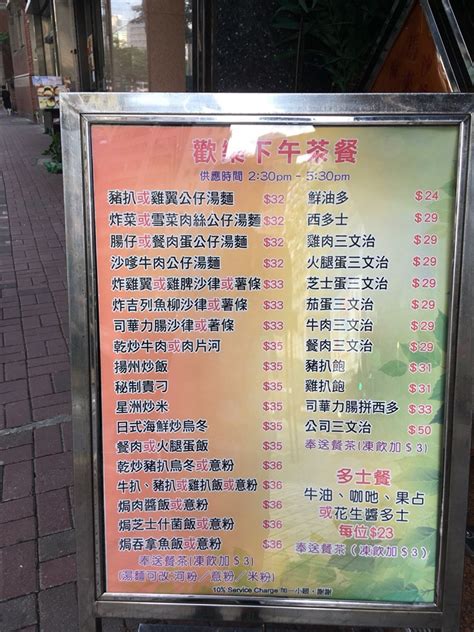 歡樂下午茶餐
供應時間 2:30pm - 5:30pm
豬扒或雞翼公仔湯麵 $32
炸菜或雪菜肉絲公仔湯麵 $32
腸仔或餐肉蛋公仔湯麵 $32
沙嗲牛肉公仔湯麵 $32
炸雞翼或雞脾沙律或薯條 $33
炸吉列魚柳沙律或薯條 $33
司華力腸沙律或薯條 $33
乾炒牛肉或肉片河 $35
揚州炒飯 $35
秘制貴刁 $35
星洲炒米 $35
日式海鮮炒烏冬 $35
餐肉或火腿蛋飯 $35
乾炒豬扒烏冬或意粉 $36
牛扒、豬扒或雞扒飯或意粉 $36
焗肉醬飯或意粉 $36
焗芝士什菌飯或意粉 $36
焗吞拿魚飯或意粉 $36
奉送餐茶(凍飲加$3)
(湯麵可改 河粉／意粉／米粉)
鮮油多 $24
西多士 $29
雞肉三文治 $29
火腿蛋三文治 $29
芝士蛋三文治 $29
茄蛋三文治 $29
牛肉三文治 $29
餐肉三文治 $29
豬扒飽 $31
雞扒飽 $31
司華力腸拼西多 $33
公司三文治 $50
奉送餐茶(凍飲加$3)
多士餐
牛油、咖吔、果占
或花生醬多士
每位$23
奉送餐茶(凍飲加$3)
10% Service Charge 加一小賬，謝謝